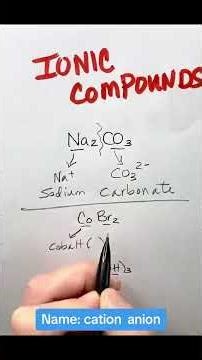 IONIC
COMPOUNDS
Na₂}CO₃
Na⁺ CO₃²⁻
Sodium Carbonate
CoBr₂
Cobalt( )
H)₃
Name: cation anion